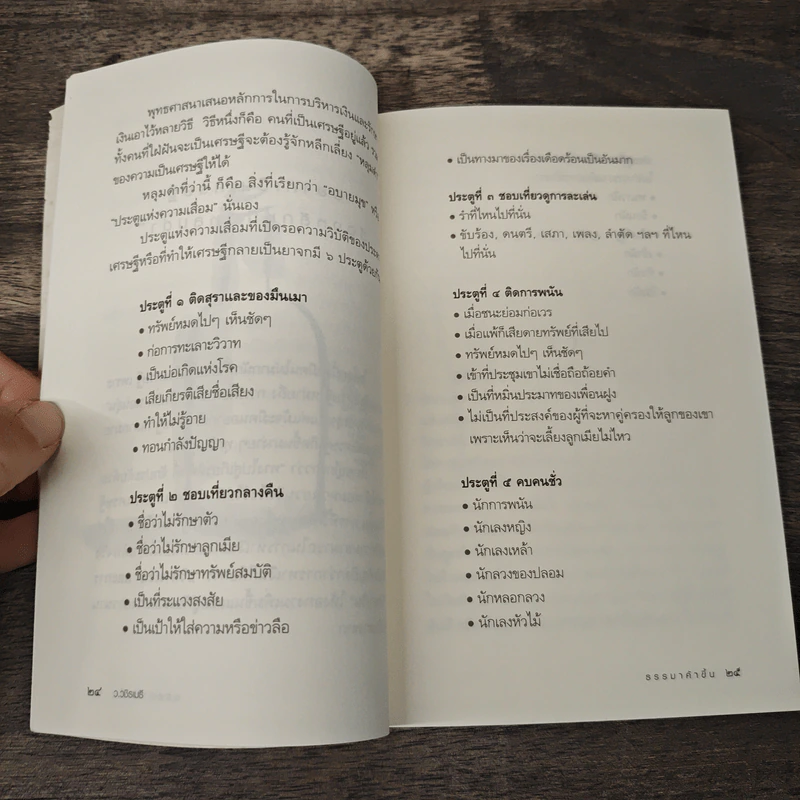 พุทธศาสนาเสนอหลักการในการบริหารเงินและรักษา
เงินเอาไว้หลายวิธี วิธีหนึ่งก็คือ คนที่เป็นเศรษฐีอยู่แล้ว
ทั้งคนที่ใฝ่ฝันจะเป็นเศรษฐีจะต้องรู้จักหลีกเลี่ยง "หลุมดำ"
ของความเป็นเศรษฐีให้ได้
หลุมดำที่ว่านี้ ก็คือ สิ่งที่เรียกว่า "อบายมุข"
"ประตูแห่งความเสื่อม" นั่นเอง
ประตูแห่งความเสื่อมที่เปิดรอความวิบัติของ
เศรษฐีหรือที่ทำให้เศรษฐีกลายเป็นยาจกมี ๖ ประตูด้วยกัน
ประตูที่ ๑ ติดสุราและของมึนเมา
• ทรัพย์หมดไปๆ เห็นชัดๆ
• ก่อการทะเลาะวิวาท
• เป็นบ่อเกิดแห่งโรค
• เสียเกียรติเสียชื่อเสียง
• ทำให้ไม่รู้อาย
• ทอนกำลังปัญญา
ประตูที่ ๒ ชอบเที่ยวกลางคืน
• ชื่อว่าไม่รักษาตัว
• ชื่อว่าไม่รักษาลูกเมีย
• ชื่อว่าไม่รักษาทรัพย์สมบัติ
• เป็นที่ระแวงสงสัย
• เป็นเป้าให้ใส่ความหรือข่าวลือ
๒๔ ว.วชิรเมธี
• เป็นทางมาของเรื่องเดือดร้อนเป็นอันมาก
ประตูที่ ๓ ชอบเที่ยวดูการละเล่น
• รำที่ไหนไปที่นั่น
• ขับร้อง, ดนตรี, เสภา, เพลง, ลำตัด ฯลฯ ที่ไหน
ไปที่นั่น
ประตูที่ ๔ ติดการพนัน
• เมื่อชนะย่อมก่อเวร
• เมื่อแพ้ก็เสียดายทรัพย์ที่เสียไป
• ทรัพย์หมดไปๆ เห็นชัดๆ
• เข้าที่ประชุมเขาไม่เชื่อถือถ้อยคำ
• เป็นที่หมิ่นประมาทของเพื่อนฝูง
• ไม่เป็นที่ประสงค์ของผู้ที่จะหาคู่ครองให้ลูกของเขา
เพราะเห็นว่าจะเลี้ยงลูกเมียไม่ไหว
ประตูที่ ๕ คบคนชั่ว
• นักการพนัน
• นักเลงหญิง
• นักเลงเหล้า
• นักลวงของปลอม
• นักหลอกลวง
• นักเลงหัวไม้
ธรรมาค้าขึ้น ๒๕